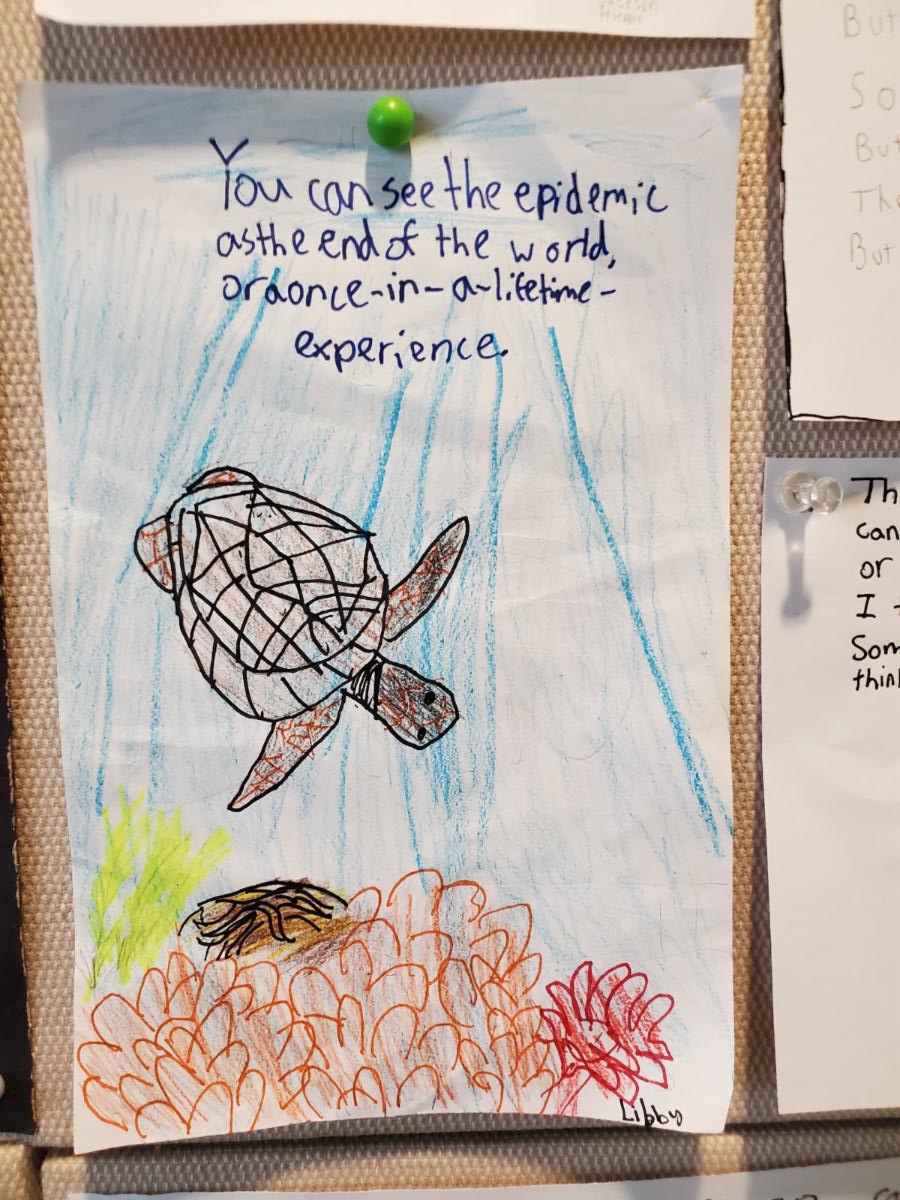 You can see the epidemic
as the end of the world,
or a once-in-a-lifetime-
experience.
Libby
But
So
But
The
But
Th
can
or
I
Som
thin